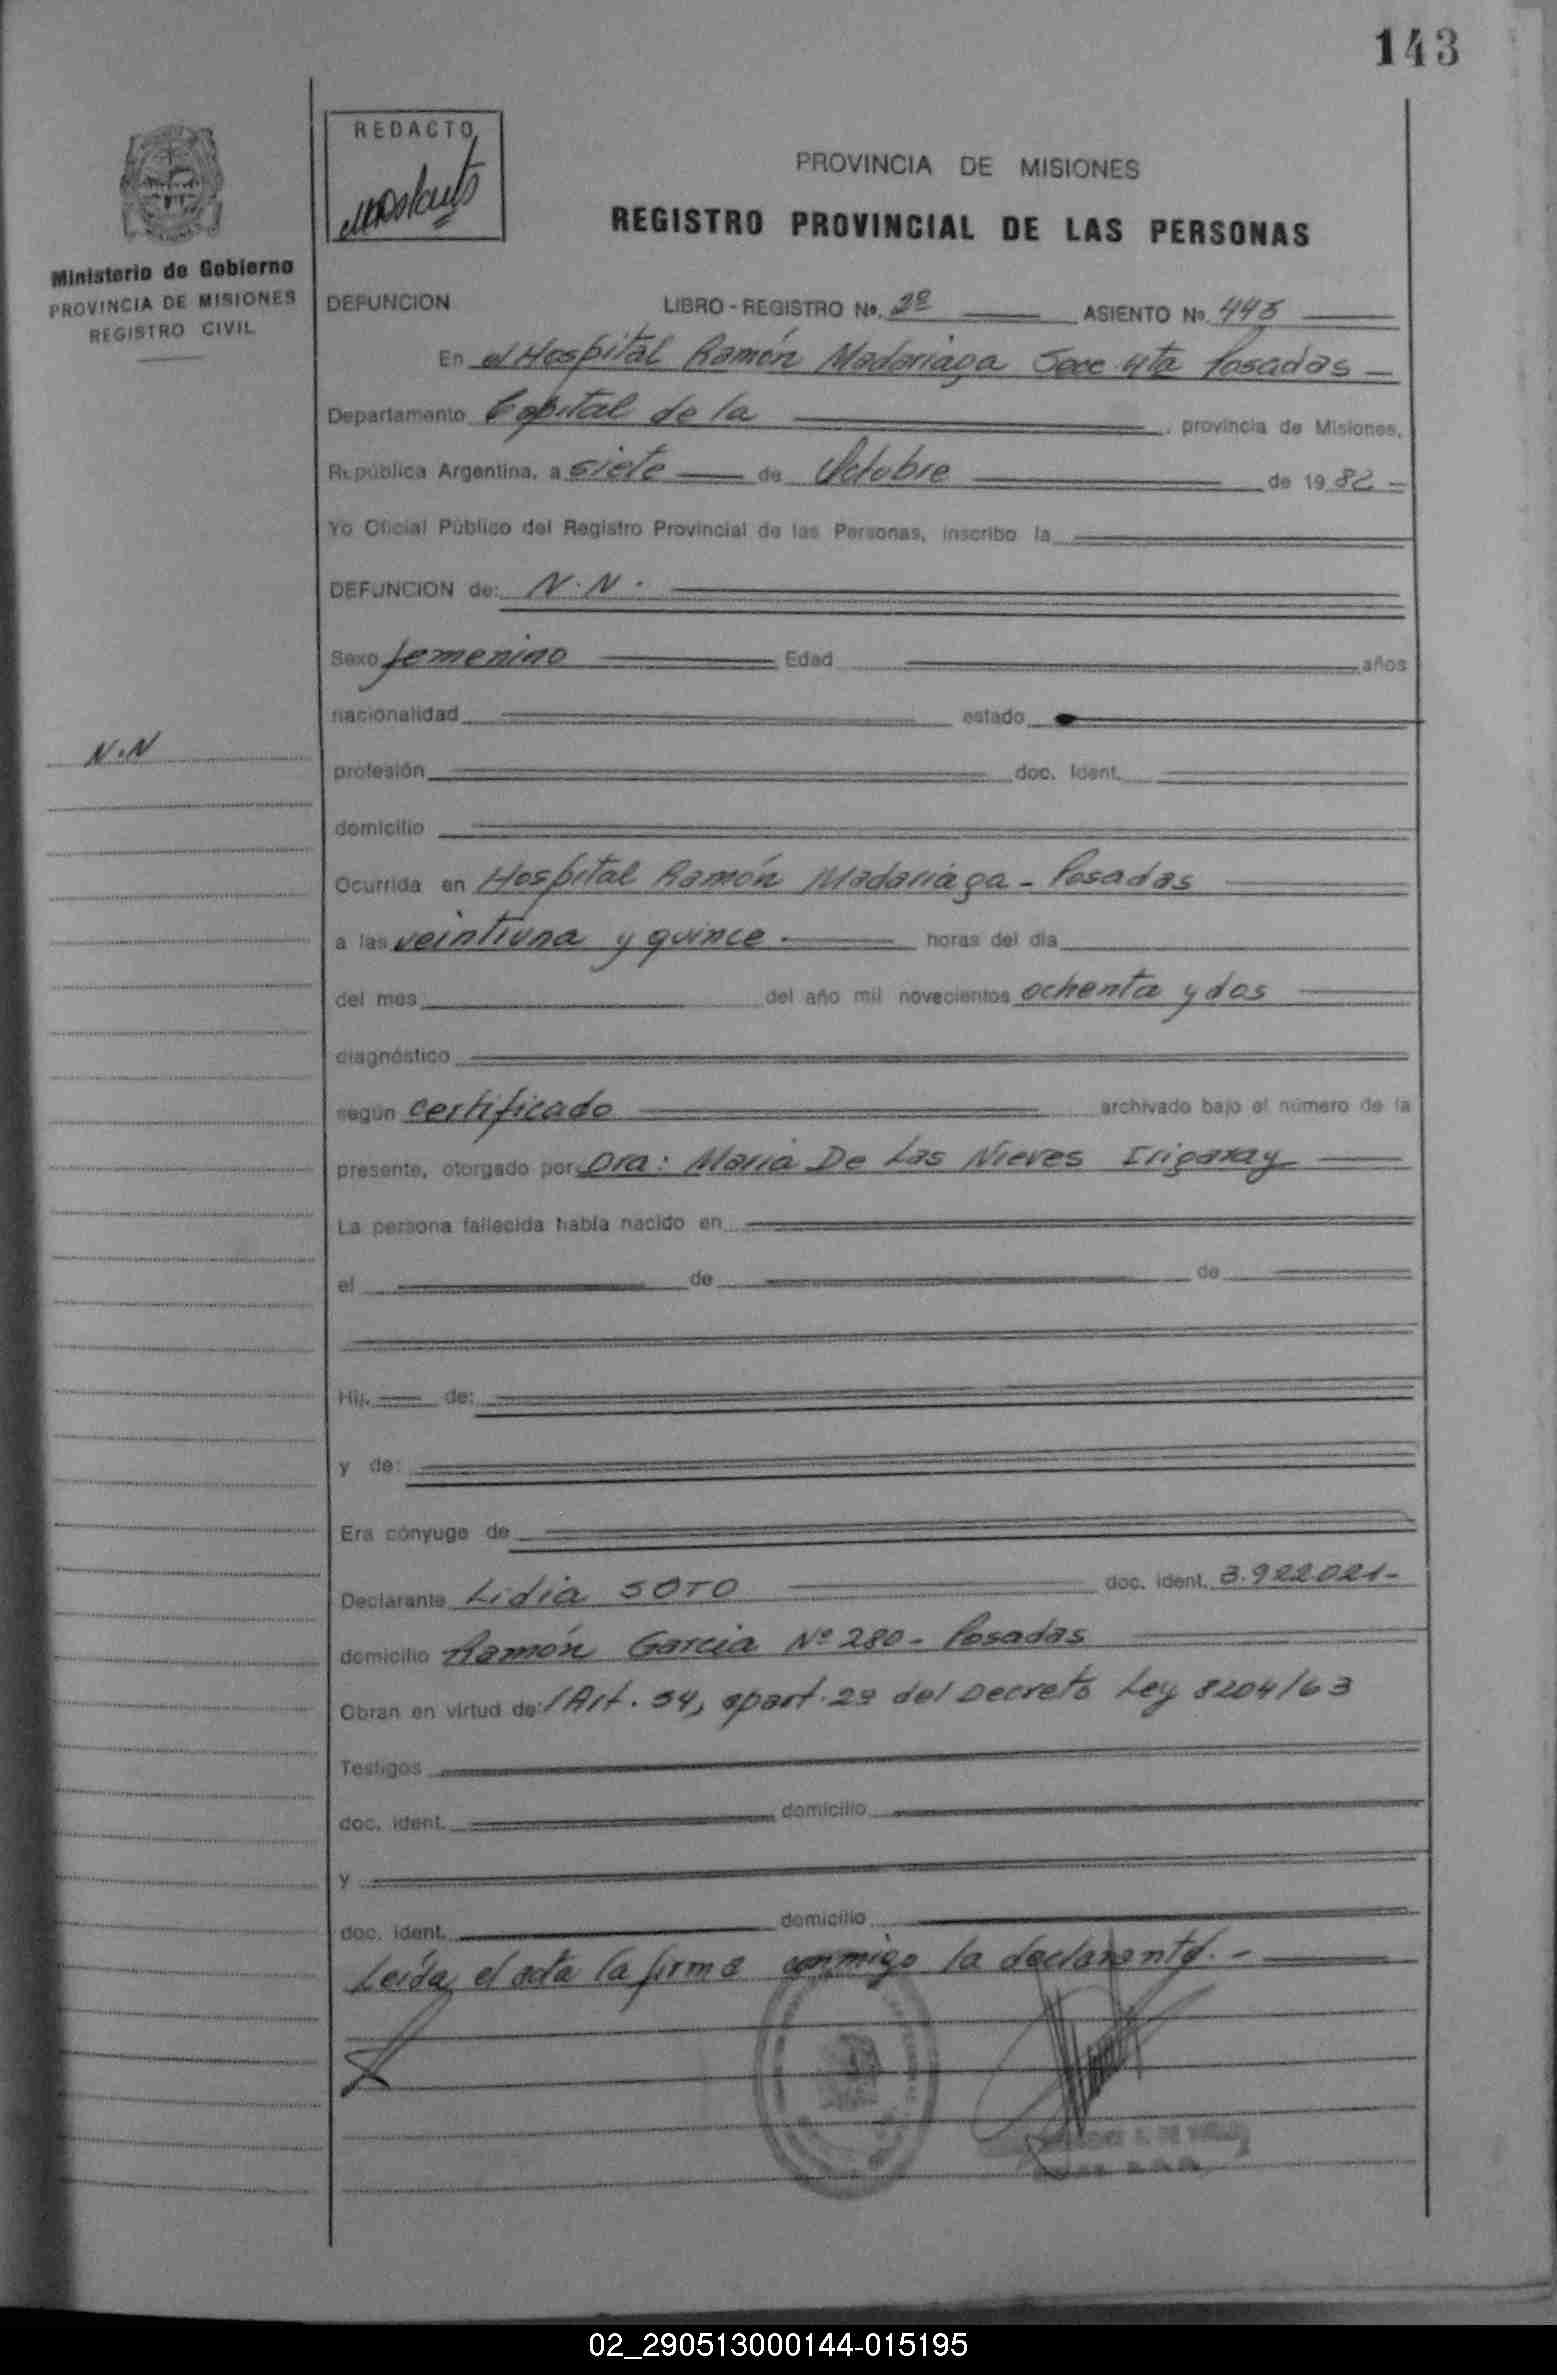 143
REDACTO
PROVINCIA DE MISIONES
REGISTRO PROVINCIAL DE LAS PERSONAS
Ministerio de Gobierno
PROVINCIA DE MISIONES
REGISTRO CIVIL
DEFUNCION LIBRO-REGISTRO Nº. 2º ASIENTO Nº. 443
En el Hospital Ramón Madariaga Secc 4ta Posadas -
Departamento Capital de la , provincia de Misiones,
República Argentina, a siete de Octubre de 1982 -
Yo Oficial Público del Registro Provincial de las Personas, inscribo la
DEFUNCION de: N.N.
Sexo femenino Edad años
nacionalidad estado
N.N
profesión doc. ident.
domicilio
Ocurrida en Hospital Ramón Madariaga - Posadas
a las veintiuna y quince - horas del día
del mes del año mil novecientos ochenta y dos
diagnóstico
según certificado archivado bajo el número de la
presente, otorgado por Dra: Maria De Las Nieves Irigaray
La persona fallecida había nacido en
el de de
Hij. de:
y de:
Era cónyuge de
Declarante Lidia SOTO doc. ident. 3.922.021-
domicilio Ramón Garcia Nº 280 - Posadas
Obran en virtud de: Art. 54, apart. 2º del Decreto Ley 8204/63
Testigos
doc. ident. domicilio
y
doc. ident. domicilio
Leída el acta la firma conmigo la declarante. -
02_290513000144-015195